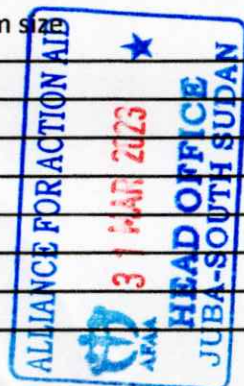 m size
ALLIANCE FOR ACTION AID
AFAA
31 MAR 2023
HEAD OFFICE
JUBA-SOUTH SUDAN